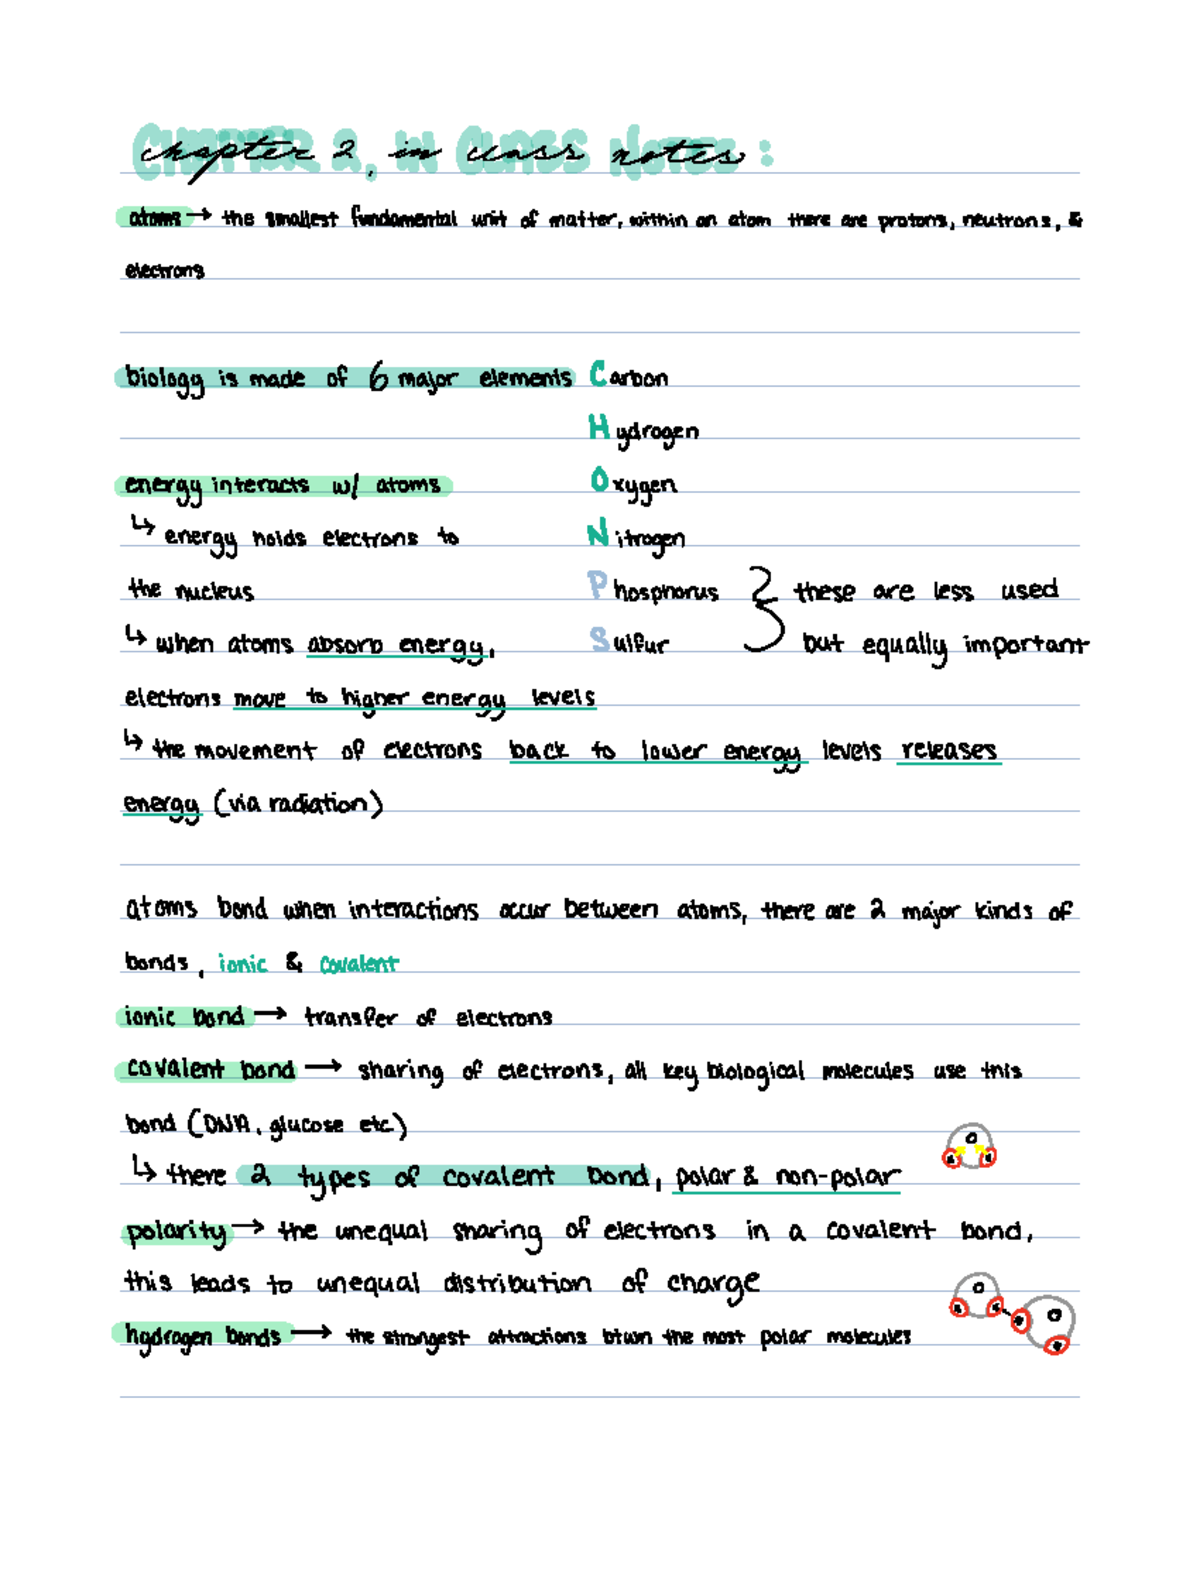 chapter 2, in class notes :
atoms → the smallest fundamental unit of matter, within an atom there are protons, neutrons, &
electrons
biology is made of 6 major elements Carbon
Hydrogen
energy interacts w/ atoms Oxygen
↳ energy holds electrons to Nitrogen
the nucleus Phosphorus } these are less used
↳ when atoms absorb energy, Sulfur but equally important
electrons move to higher energy levels
↳ the movement of electrons back to lower energy levels releases
energy (via radiation)
atoms bond when interactions occur between atoms, there are 2 major kinds of
bonds, ionic & covalent
ionic bond → transfer of electrons
covalent bond → sharing of electrons, all key biological molecules use this
bond (DNA, glucose etc)
↳ there 2 types of covalent bond, polar & non-polar
polarity → the unequal sharing of electrons in a covalent bond,
this leads to unequal distribution of charge
hydrogen bonds → the strongest attractions btwn the most polar molecules